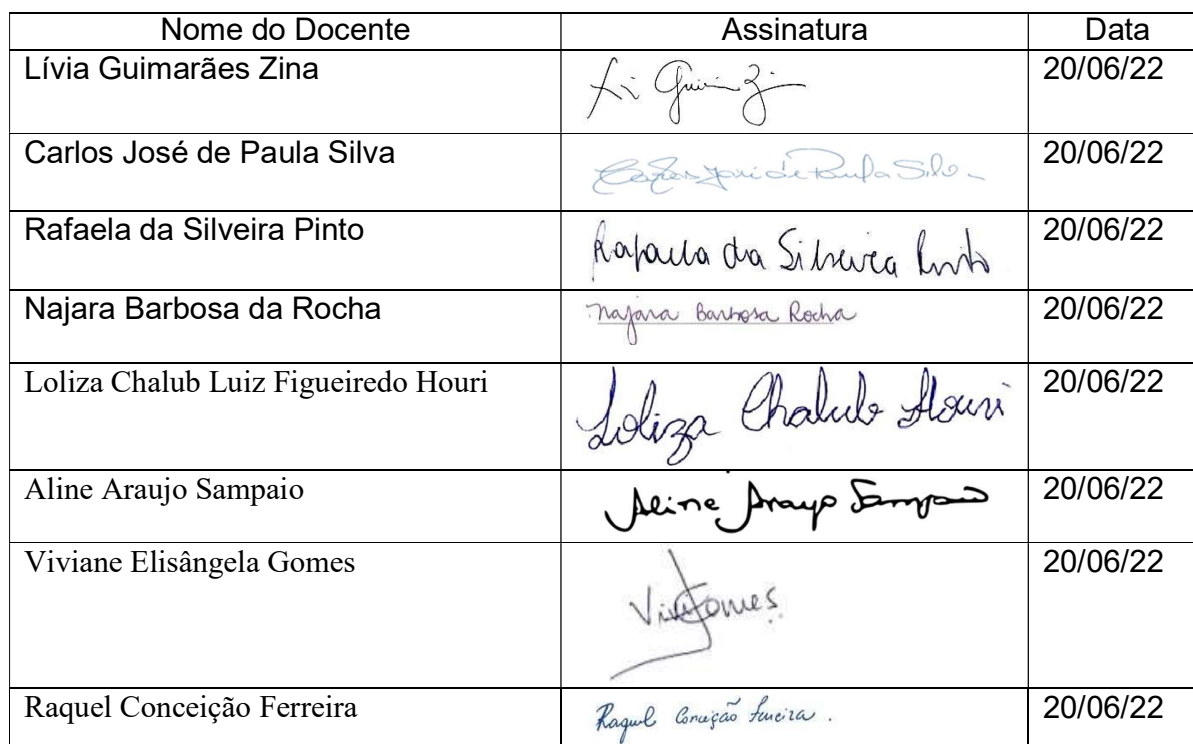 Nome do Docente Assinatura Data
Lívia Guimarães Zina 20/06/22
Carlos José de Paula Silva Carlos José de Paula Silva 20/06/22
Rafaela da Silveira Pinto Rafaela da Silveira Pinto 20/06/22
Najara Barbosa da Rocha Najara Barbosa Rocha 20/06/22
Loliza Chalub Luiz Figueiredo Houri Loliza Chalub Houri 20/06/22
Aline Araujo Sampaio Aline Araujo Sampaio 20/06/22
Viviane Elisângela Gomes ViviGomes 20/06/22
Raquel Conceição Ferreira Raquel Conceição Ferreira. 20/06/22